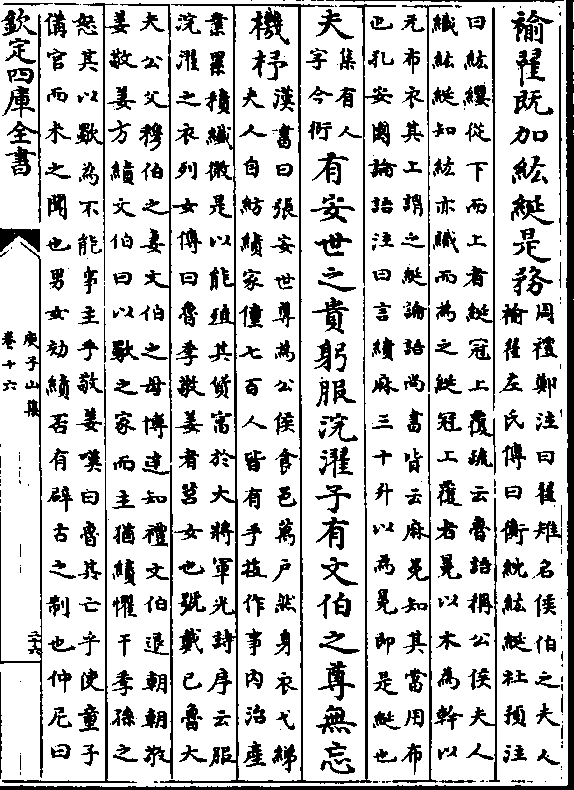 褕翟既加紘綖是務
周禮鄭注曰翟雉名侯伯之夫人
褕翟左氏傳曰衡紞紘綖杜預注
曰紘纓從下而上者綖冠上覆疏云魯語稱公侯夫人
織紘綖知紘亦織而為之綖冠上覆者冕以木為幹以
元布衣其上謂之綖論語尚書皆云麻冕知其當用布
也孔安國論語注曰言績麻三十升以為冕即是綖也
夫
集有人
字今衍
有安世之貴躬服浣濯子有文伯之尊無忘
機杼
漢書曰張安世尊為公侯食邑萬户然身衣弋綈
夫人自紡績家僮七百人皆有手技作事内治產
業累積纎微是以能殖其貨富於大將軍光詩序云服
浣濯之衣列女傳曰魯季敬姜者莒女也號戴己魯大
夫公父穆伯之妻文伯之母博達知禮文伯退朝朝敬
姜敬姜方績文伯曰以歜之家而主猶績懼干季孫之
怒其以歜為不能事主乎敬姜嘆曰魯其亡乎使童子
備官而未之聞也男女効績否有辟古之制也仲尼曰
欽定四庫全書
庾子山集
卷十六